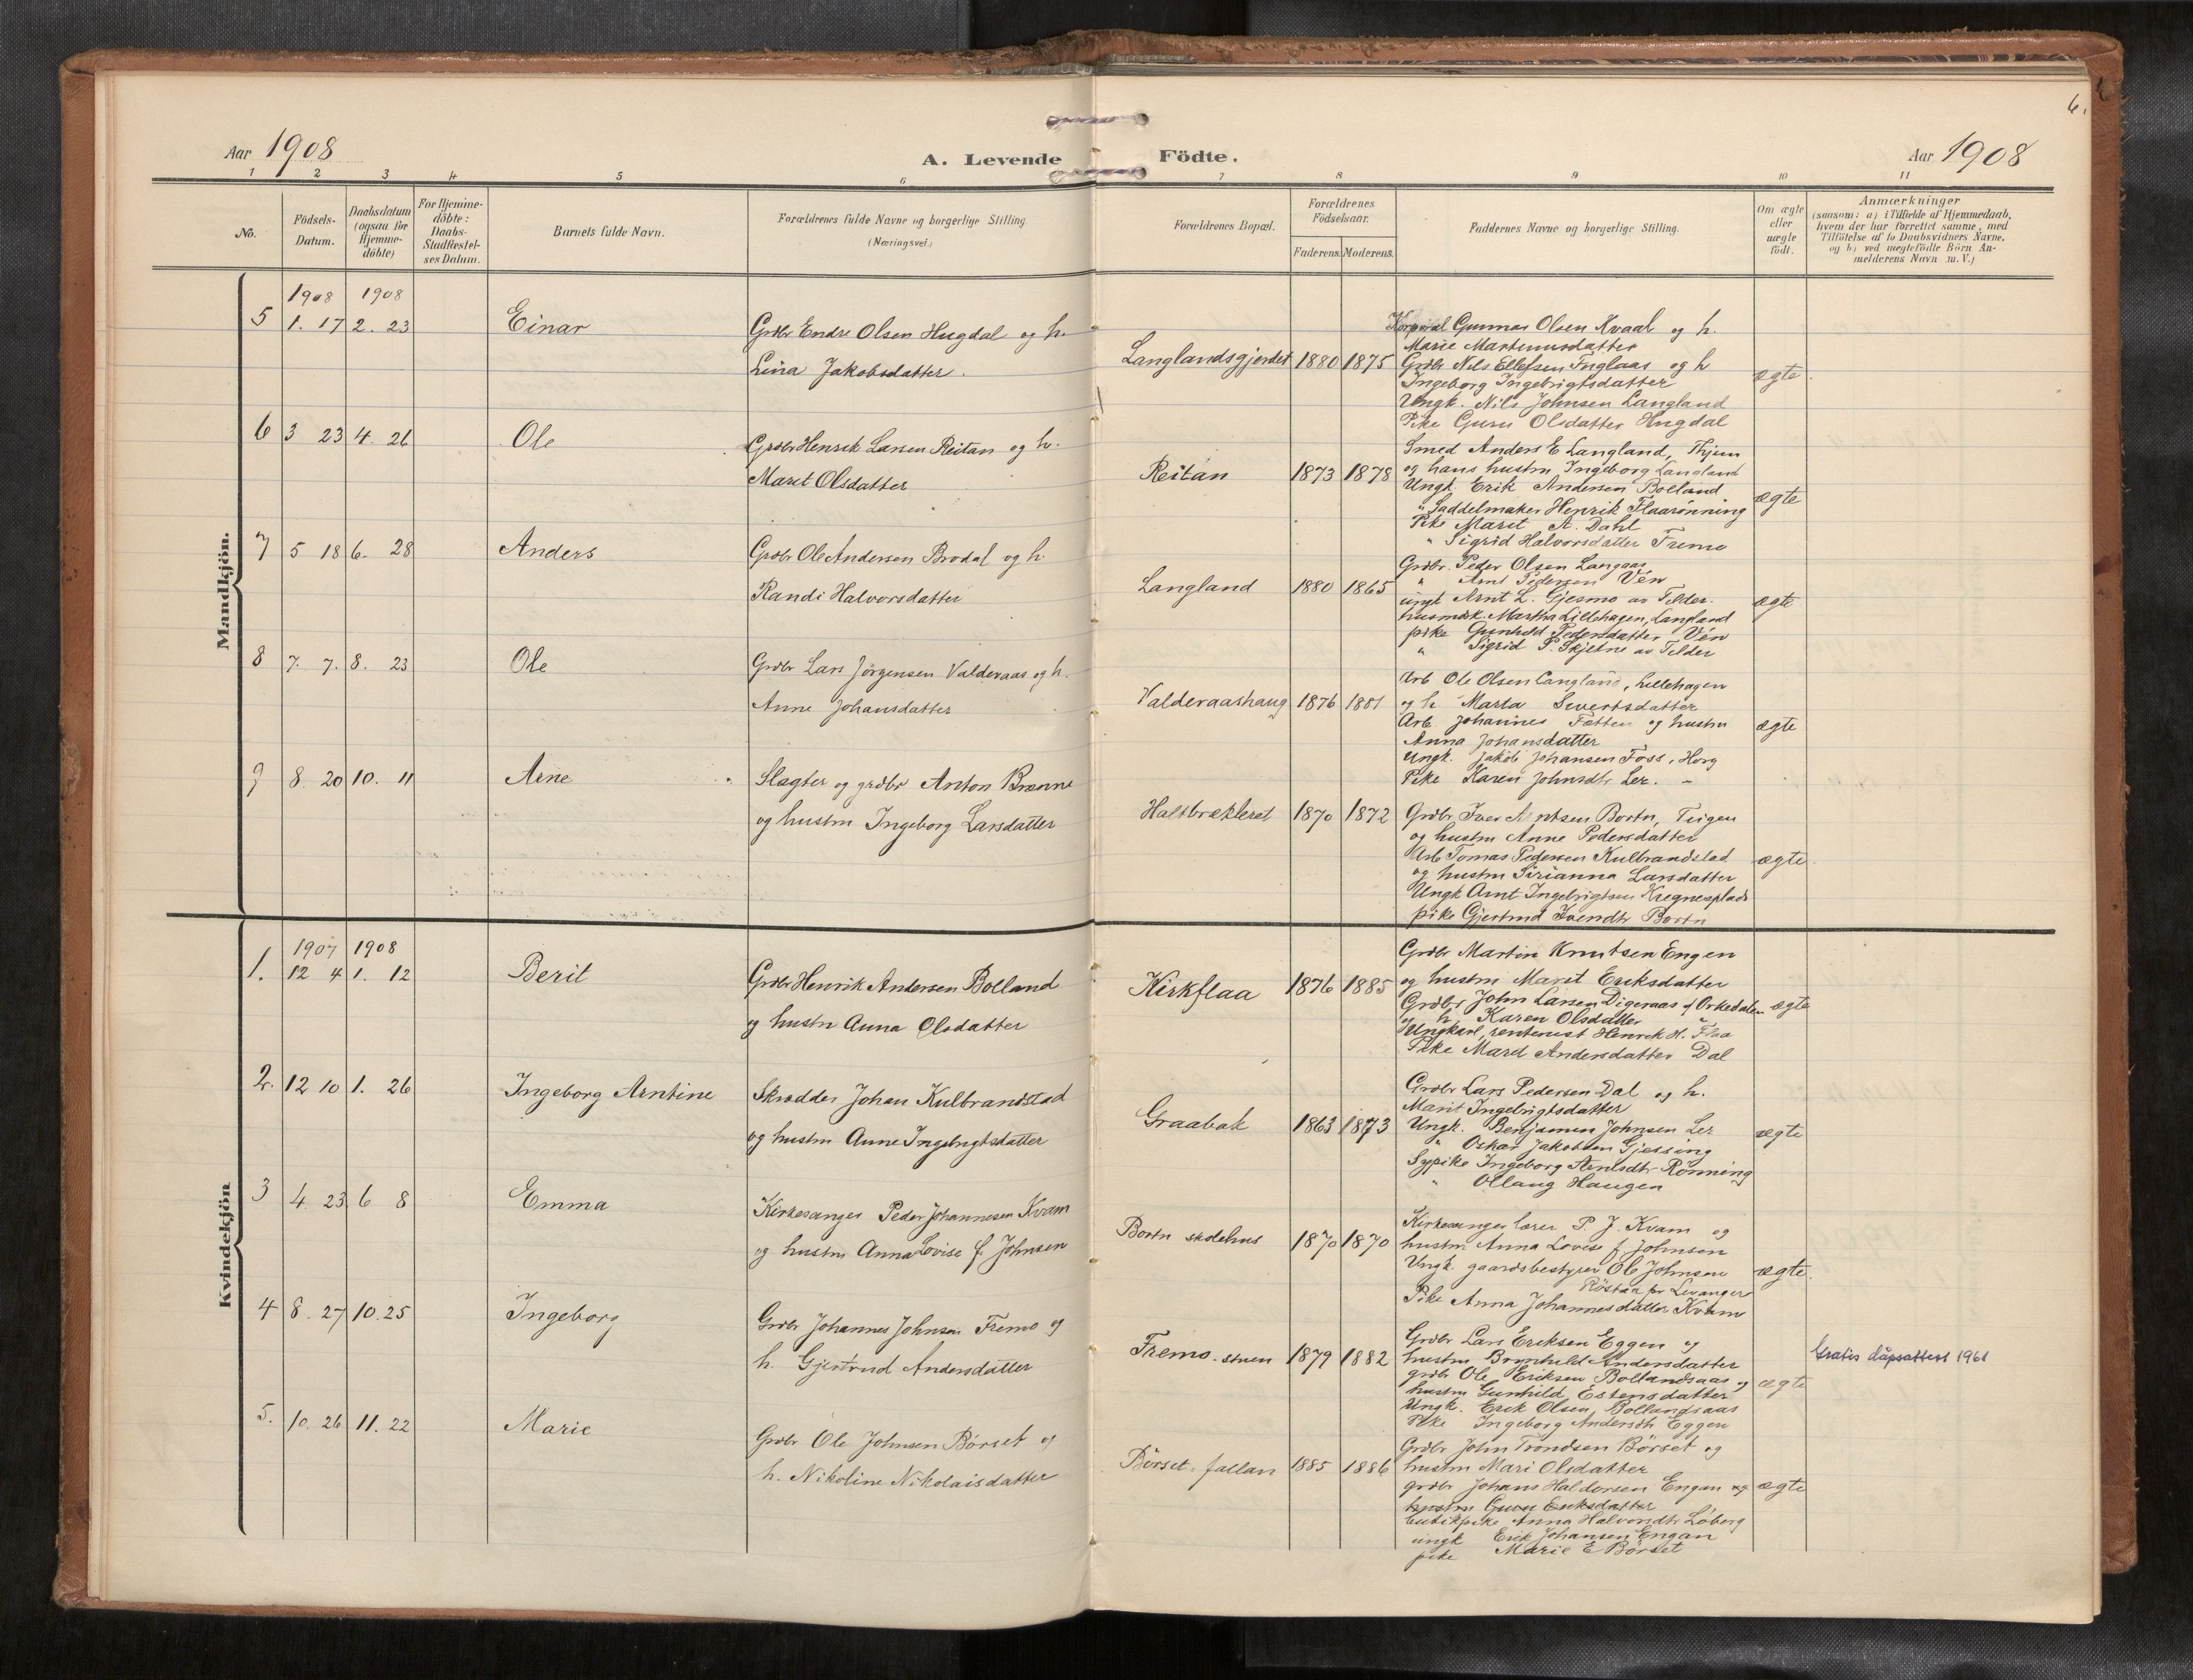 6.
Aar 1908
A. Levende Födte.
Aar 1908
1 2 3 4 5 6 7 8 9 10 11
No.
Födsels-
Datum.
Daabsdatum
(ogsaa for
Hjemme-
döbte)
For Hjemme-
döbte:
Daabs-
Stadfæstel-
ses Datum.
Barnets fulde Navn.
Forældrenes fulde Navne og borgerlige Stilling.
(Næringsvei.)
Forældrenes Bopæl.
Forældrenes
Födselsaar.
Faderens. Moderens.
Faddernes Navne og borgerlige Stilling.
Om ægte
eller
uægte
födt.
Anmærkninger
(saasom: a) i Tilfælde af Hjemmedaab,
hvem der har forrettet samme, med
Tilföielse af to Daabsvidners Navne,
og b) ved uægtefödte Börn An-
melderens Navn m.V.)
Mandkjön.
1908 1908
5 1. 17 2. 23 Einar
Grdbr Endre Olsen Hugdal og h.
Lina Jakobsdatter.
Langlandsgjerdet 1880 1875
Korporal Gunnar Olsen Kvaal og h.
Marie Martinusdatter
Grdbr Nils Ellefsen Fuglaas og h
Ingeborg Ingebrigtsdatter
Ungk. Nils Johnsen Langland
Pike Guru Olsdatter Hugdal
ægte
6 3 23 4. 26 Ole
Grdbr Henrik Larsen Reitan og h.
Marit Olsdatter
Reitan 1873 1878
Smed Anders E Langland,
og hans hustru Ingeborg Langland
Ungk Erik Andersen Bolland
" Saddelmaker Henrik Flaarønning
Pike Marit A. Dahl
" Sigrid Halvorsdatter Fremo
ægte
7 5 18 6. 28 Anders
Grdbr Ole Andersen Brodal og h.
Randi Halvorsdatter
Langland 1880 1865
Grdbr. Peder Olsen Langaas
" Arnt Pedersen Vén
ungk Arnt L. Gjesmo av Tilder.
husmdsk. Martha Lillehagen, Langland
pike Gunhild Pedersdatter Vén
" Sigrid P. Skjetne av Tilder
ægte
8 7. 7. 8. 23 Ole
Grdbr Lars Jørgensen Valderaas og h.
Anne Johansdatter
Valderaashaug 1876 1881
Arb Ole Olsen Langland, Lillehagen
og h Marta Sivertsdatter
Arb Johannes Fætten og hustru
Anna Johansdatter
Ungk. Jakob Johansen Foss, Horg
Pike Karen Johnsdtr Ler. –
ægte
9 8 20 10. 11 Arne
Slagter og grdbr Anton Brenne
og hustru Ingeborg Larsdatter
Haltbrekleret 1870 1872
Grdbr. Iver Arntsen Bortn, Teigen
og hustru Anne Pedersdatter
Arb Tomas Pedersen Kulbrandstad
og hustru Sirianna Larsdatter
Ungk Arnt Ingebrigtsen Kregnesplads
pike Gjertrud Iversdtr Bortn
ægte
Kvindekjön
1907 1908
1. 12 4 1. 12 Berit
Grdbr Henrik Andersen Bolland
og hustru Anna Olsdatter
Kirkflaa 1876 1885
Grdbr Martin Knutsen Engen
og hustru Marit Eriksdatter
Grdbr John Larsen Digeraas af Orkedalen
og h. Karen Olsdatter "
Ungkarl, rentenist Henrik H. Flaa
Pike Marit Andersdatter Dal
ægte
2. 12 10 1. 26 Ingeborg Arntine
Skrædder Johan Kulbrandstad
og hustru Anne Ingebrigtsdatter
Graabak 1863 1873
Grdbr Lars Pedersen Dal og h.
Marit Ingebrigtsdatter
Ungk. Benjamin Johnsen Ler
" Oskar Jakobsen Gjessing
Sypike Ingeborg Arntsdtr Rønning
" Ollaug Haugen
ægte
3 4 23 6 8 Emma
Kirkesanger Peder Johannesen Kvam
og hustru Anna Lovise f. Johnsen
Bortn skolehus 1870 1870
Kirkesanger lærer P. J. Kvam og
hustru Anna Lovise f Johnsen
Ungk. gaardsbestyrer Ole Johnsen
Röstad pr Levanger
Pike Anna Johannesdatter Kvam
ægte.
4 8. 27 10. 25 Ingeborg
Grdbr Johannes Johnsen Fremo og
h. Gjertrud Andersdatter
Fremo-stuen 1879 1882
Grdbr Lars Eriksen Eggen og
hustru Brynhild Andersdatter
grdbr Ole Eriksen Bollandsaas og
hustru Gunhild Estensdatter
Ungk. Erik Olsen Bollandsaas
Pike Ingeborg Andersdtr Eggen
ægte
Gratis dåpsattest 1961
5. 10. 26 11. 22 Marie
Grdbr Ole Johnsen Børset og
h. Nikoline Nikolaisdatter
Børset. fallan 1885 1886
Grdbr John Trondsen Børset og
hustru Mari Olsdatter
grdbr Johans Haldorsen Engan og
hustru Guru Eriksdatter
butikpike Anna Halvorsdtr Løberg
ungk Erik Johansen Engan
pike Marie E Børset
ægte